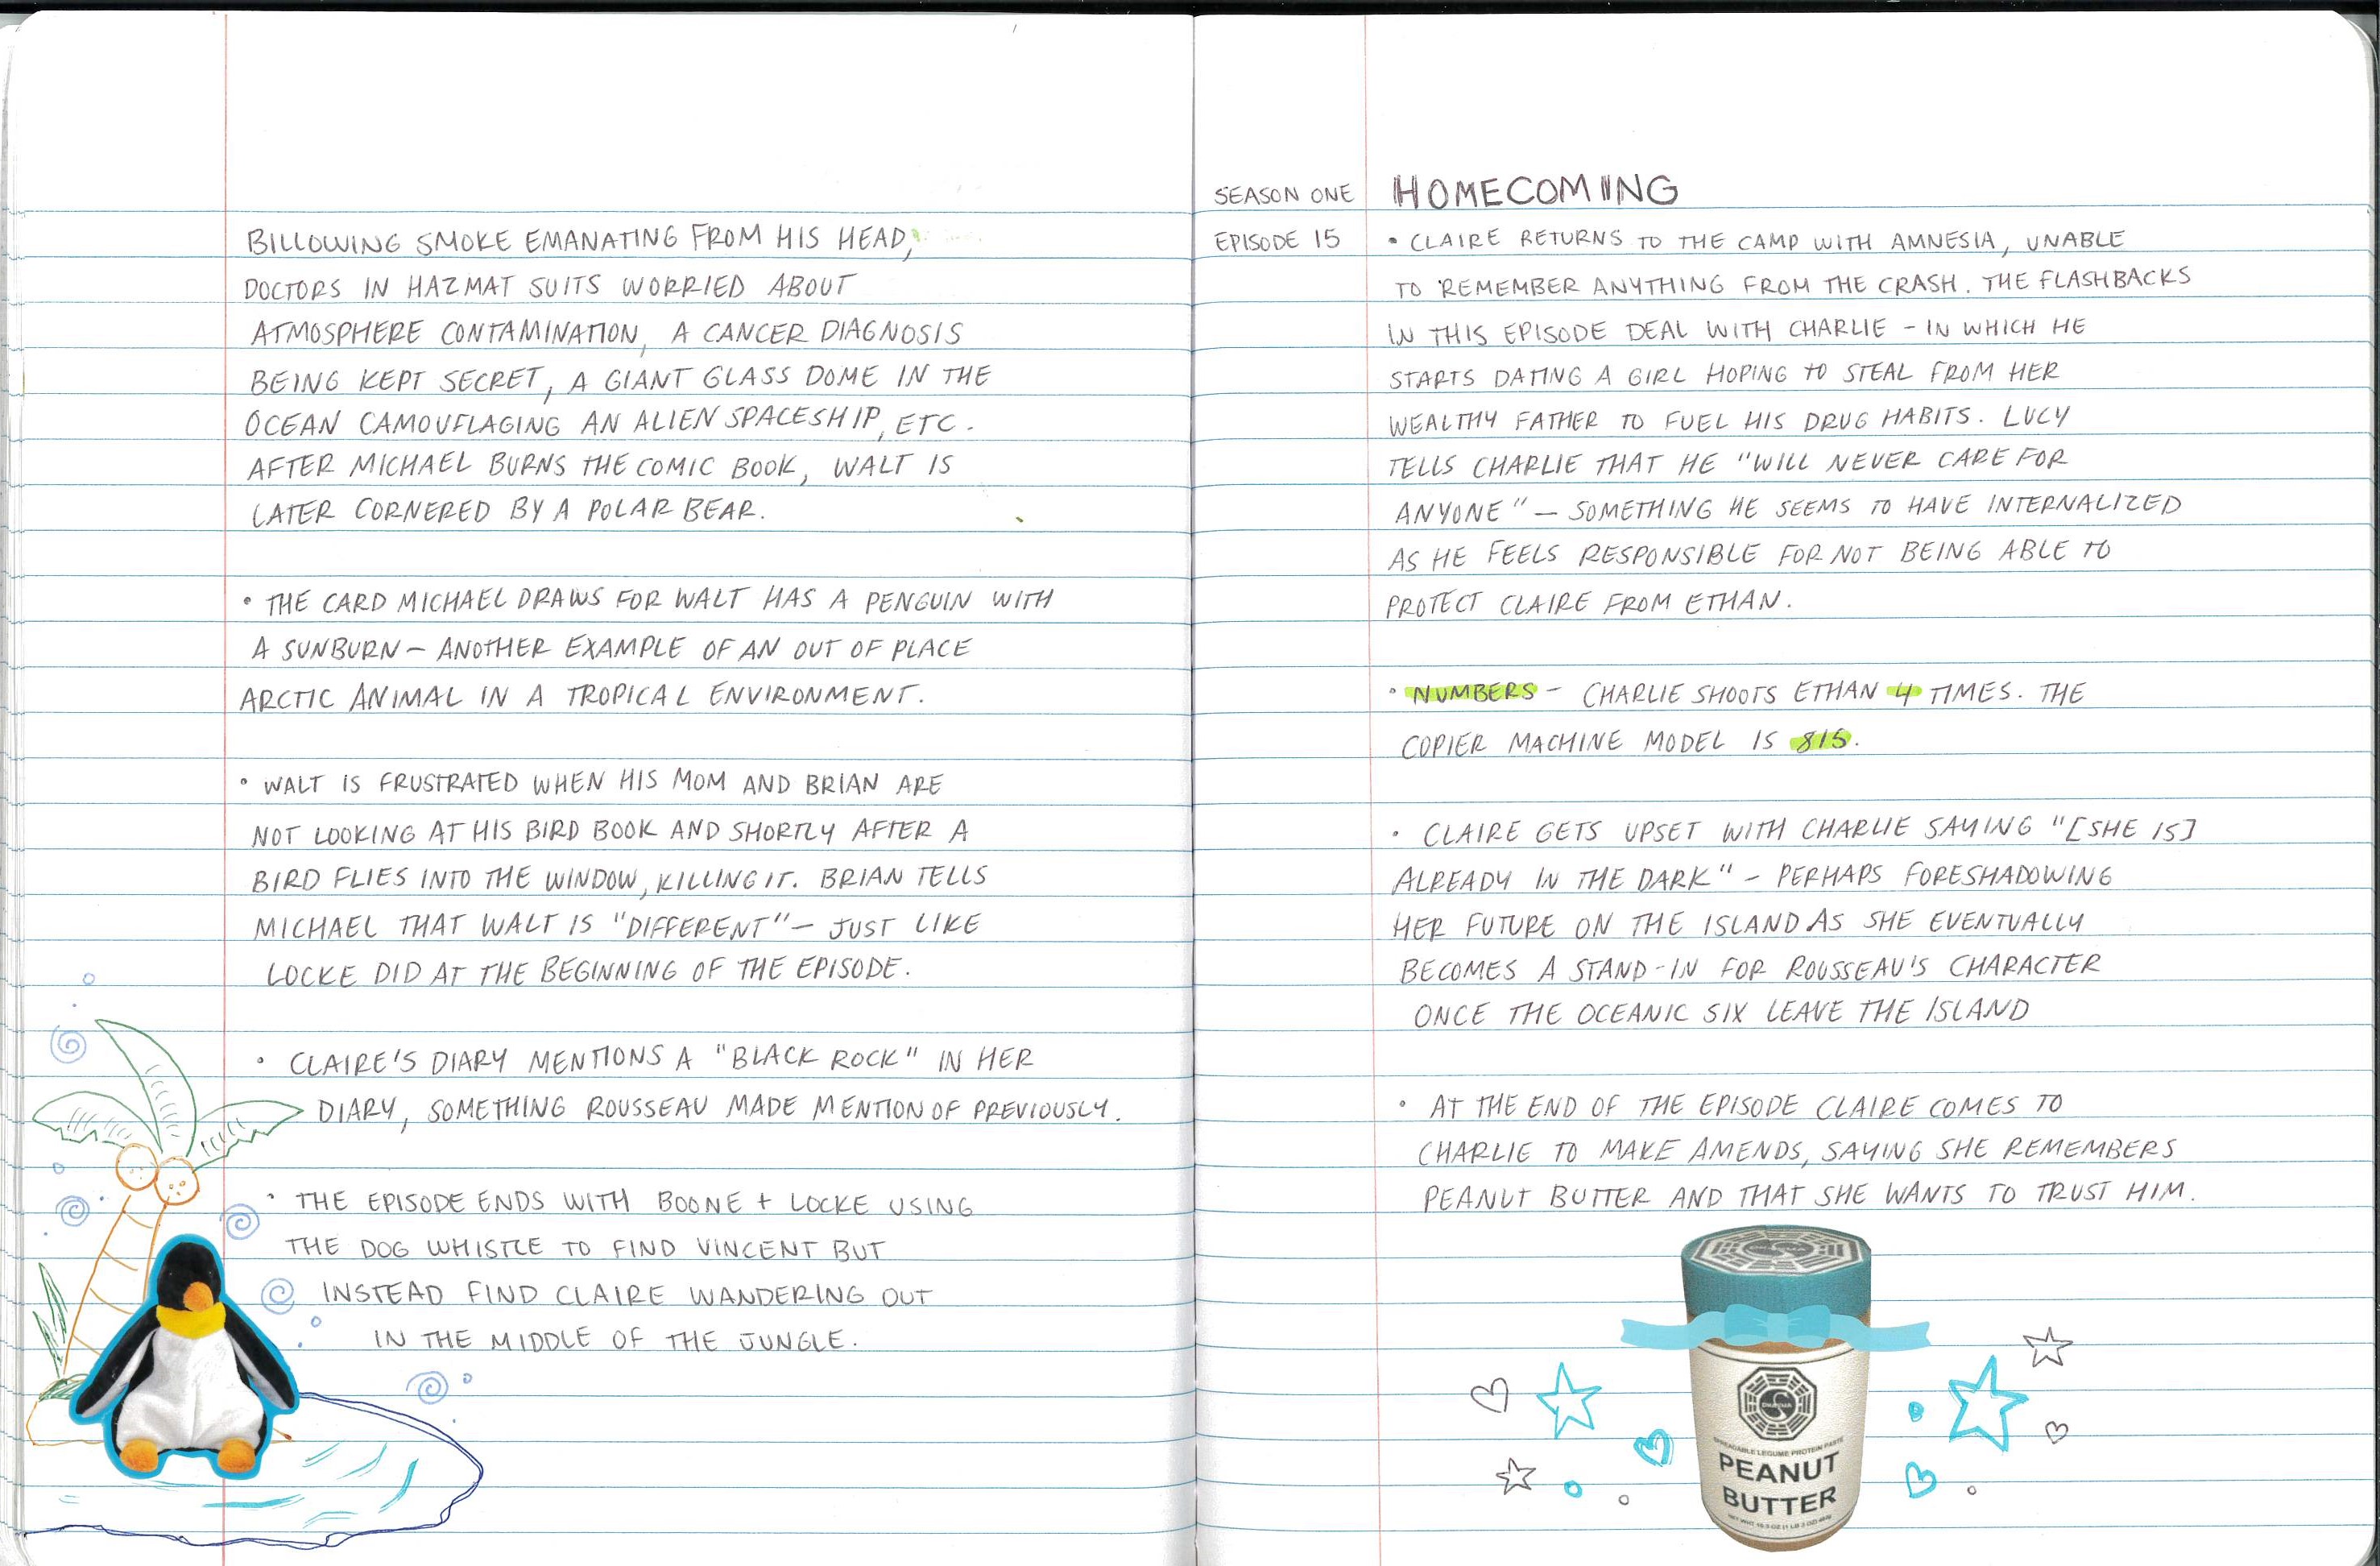 BILLOWING SMOKE EMANATING FROM HIS HEAD,
DOCTORS IN HAZMAT SUITS WORRIED ABOUT
ATMOSPHERE CONTAMINATION, A CANCER DIAGNOSIS
BEING KEPT SECRET, A GIANT GLASS DOME IN THE
OCEAN CAMOUFLAGING AN ALIEN SPACESHIP, ETC.
AFTER MICHAEL BURNS THE COMIC BOOK, WALT IS
LATER CORNERED BY A POLAR BEAR.
• THE CARD MICHAEL DRAWS FOR WALT HAS A PENGUIN WITH
A SUNBURN – ANOTHER EXAMPLE OF AN OUT OF PLACE
ARCTIC ANIMAL IN A TROPICAL ENVIRONMENT.
• WALT IS FRUSTRATED WHEN HIS MOM AND BRIAN ARE
NOT LOOKING AT HIS BIRD BOOK AND SHORTLY AFTER A
BIRD FLIES INTO THE WINDOW, KILLING IT. BRIAN TELLS
MICHAEL THAT WALT IS "DIFFERENT" – JUST LIKE
LOCKE DID AT THE BEGINNING OF THE EPISODE.
• CLAIRE'S DIARY MENTIONS A "BLACK ROCK" IN HER
DIARY, SOMETHING ROUSSEAU MADE MENTION OF PREVIOUSLY.
• THE EPISODE ENDS WITH BOONE + LOCKE USING
THE DOG WHISTLE TO FIND VINCENT BUT
INSTEAD FIND CLAIRE WANDERING OUT
IN THE MIDDLE OF THE JUNGLE.
SEASON ONE
EPISODE 15
HOMECOMING
• CLAIRE RETURNS TO THE CAMP WITH AMNESIA, UNABLE
TO REMEMBER ANYTHING FROM THE CRASH. THE FLASHBACKS
IN THIS EPISODE DEAL WITH CHARLIE – IN WHICH HE
STARTS DATING A GIRL HOPING TO STEAL FROM HER
WEALTHY FATHER TO FUEL HIS DRUG HABITS. LUCY
TELLS CHARLIE THAT HE "WILL NEVER CARE FOR
ANYONE" – SOMETHING HE SEEMS TO HAVE INTERNALIZED
AS HE FEELS RESPONSIBLE FOR NOT BEING ABLE TO
PROTECT CLAIRE FROM ETHAN.
• NUMBERS – CHARLIE SHOOTS ETHAN 4 TIMES. THE
COPIER MACHINE MODEL IS 815.
• CLAIRE GETS UPSET WITH CHARLIE SAYING "[SHE IS]
ALREADY IN THE DARK" – PERHAPS FORESHADOWING
HER FUTURE ON THE ISLAND AS SHE EVENTUALLY
BECOMES A STAND-IN FOR ROUSSEAU'S CHARACTER
ONCE THE OCEANIC SIX LEAVE THE ISLAND
• AT THE END OF THE EPISODE CLAIRE COMES TO
CHARLIE TO MAKE AMENDS, SAYING SHE REMEMBERS
PEANUT BUTTER AND THAT SHE WANTS TO TRUST HIM.
DHARMA
DHARMA
SPREADABLE LEGUME PROTEIN PASTE
PEANUT
BUTTER